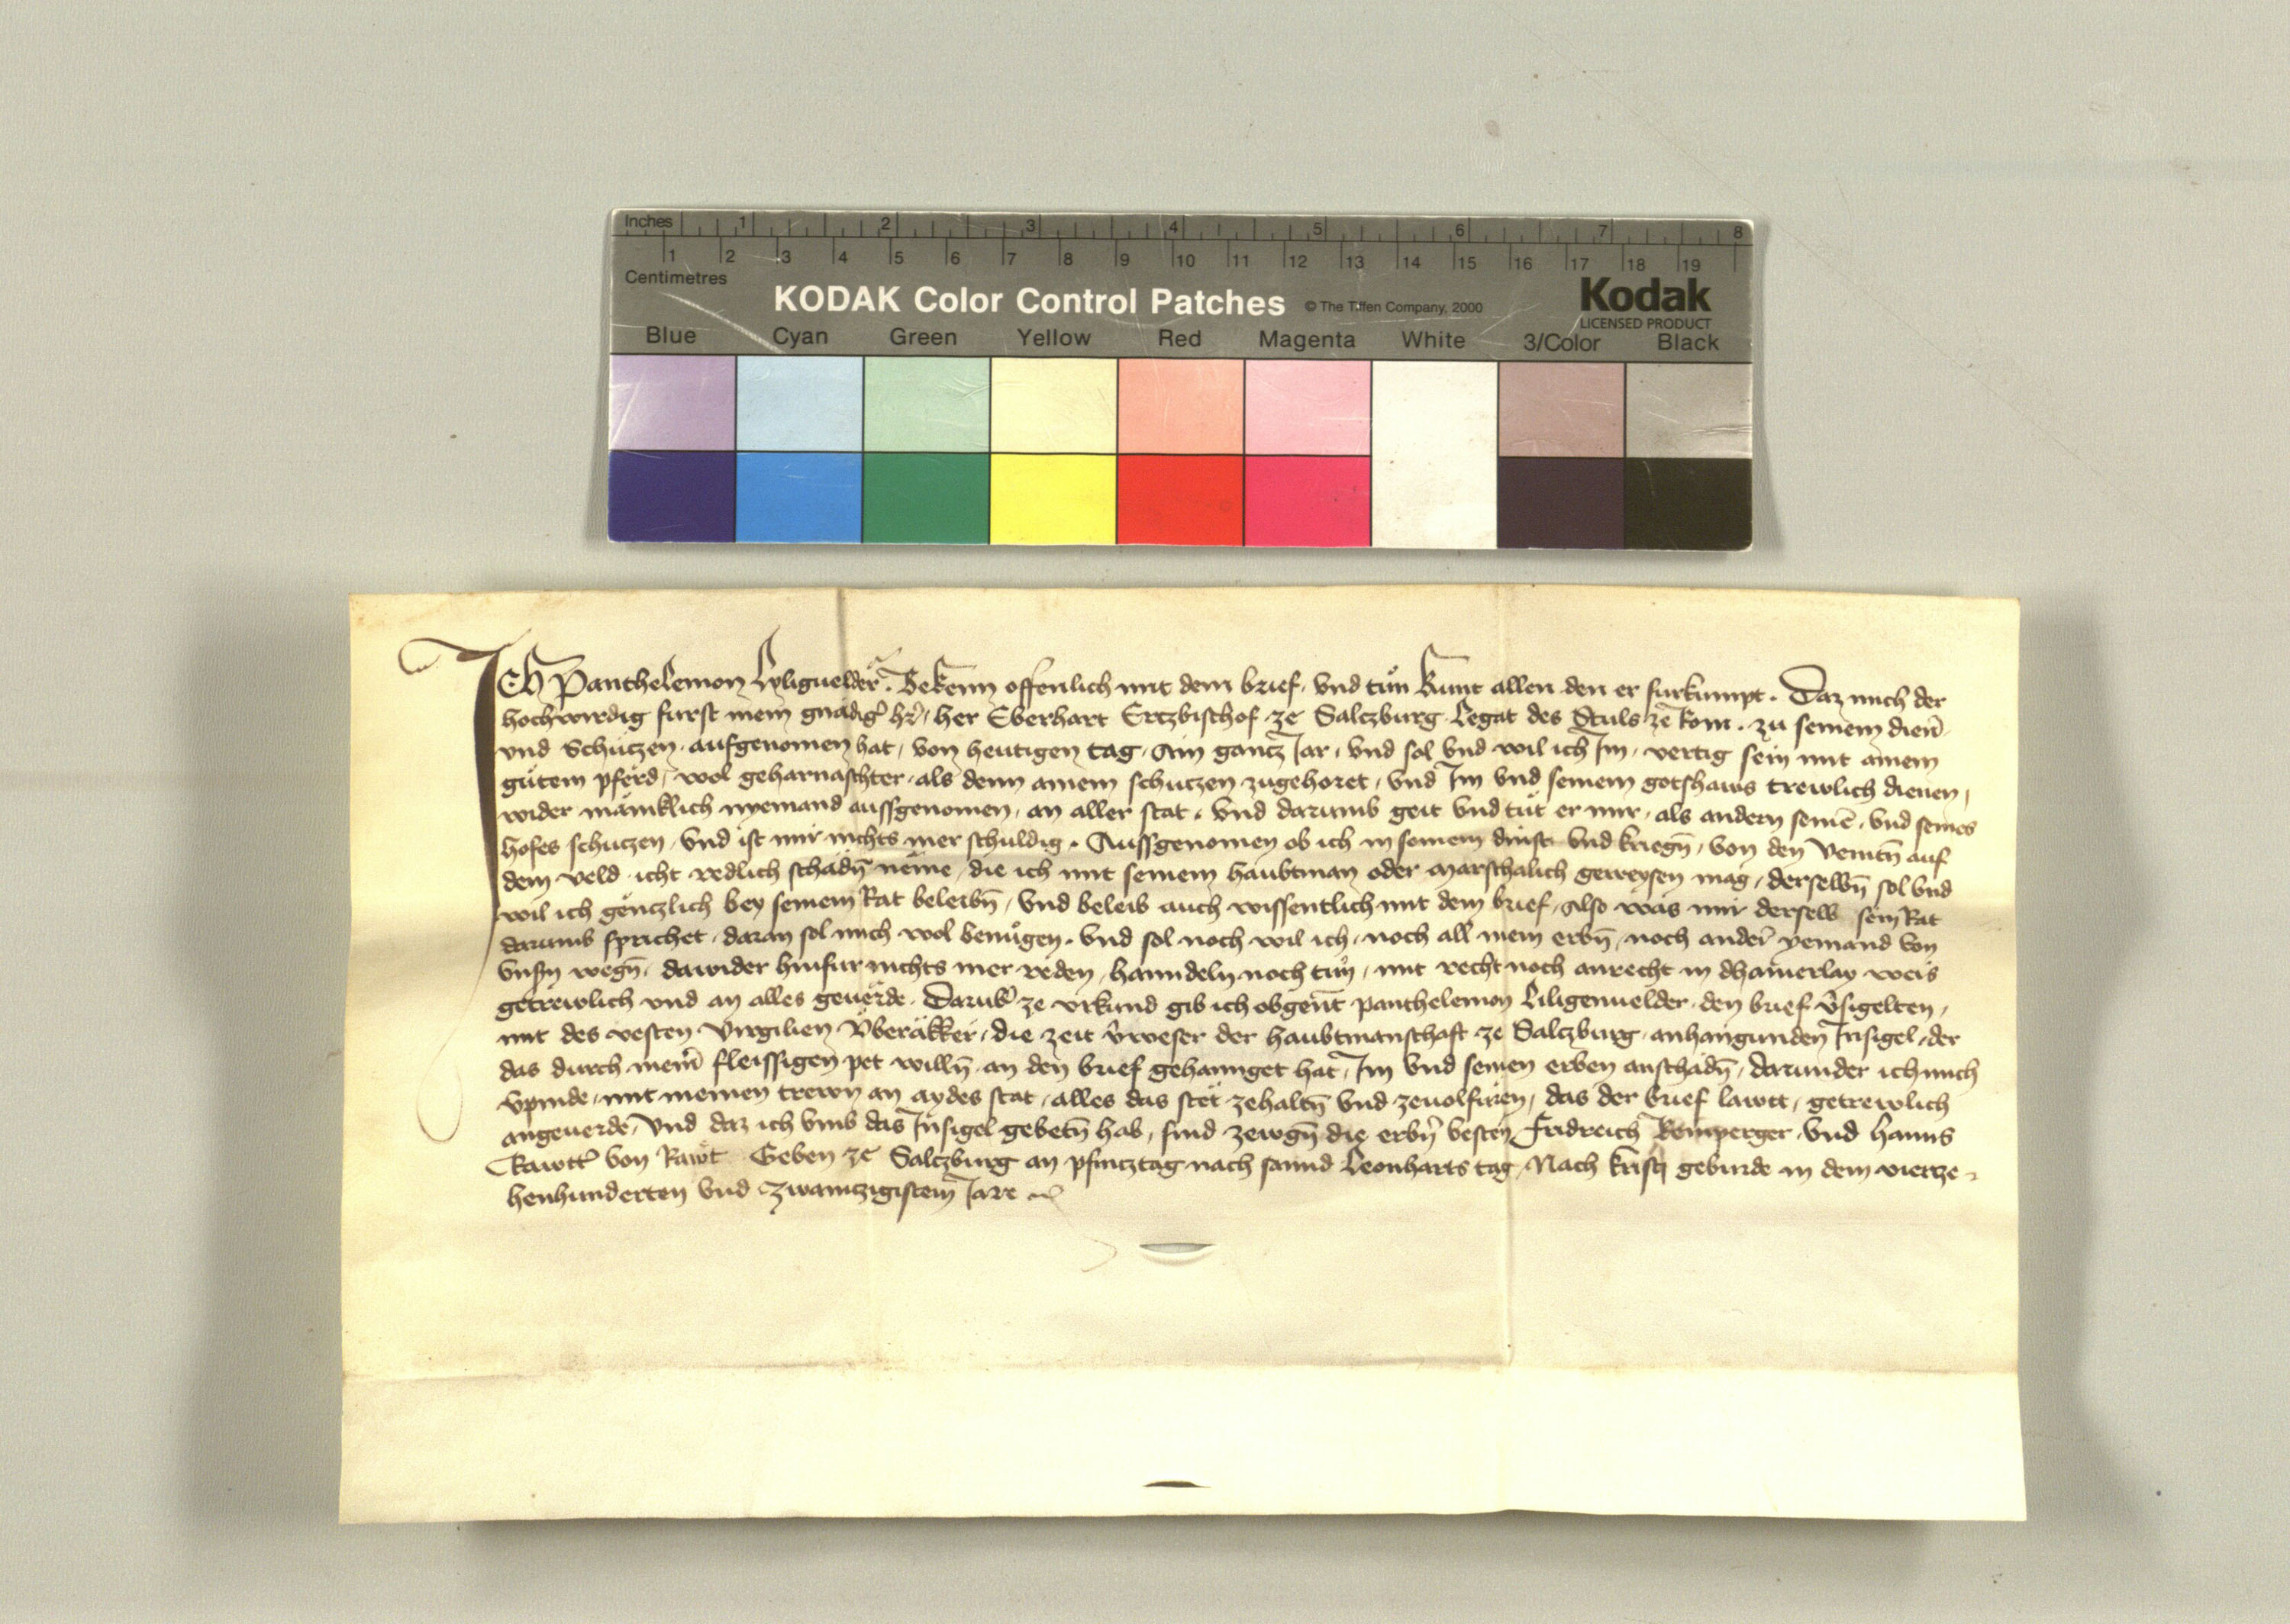 Inches 1 2 3 4 5 6 7 8
1 2 3 4 5 6 7 8 9 10 11 12 13 14 15 16 17 18 19
Centimetres
KODAK Color Control Patches © The Tiffen Company, 2000 Kodak
LICENSED PRODUCT
Blue Cyan Green Yellow Red Magenta White 3/Color Black
Ich Panthelemon Lyliguelder. Bekenn offenlich mit dem brief, vnd tůn kunt allen den er furkumpt. Daz mich der
hochwirdig furst mein gnädig̉ hr̉, her Eberhart Ertzbischof ze Salczburg Legat des Stuls ze Rom. zu seinem dien̄
vnd Schützen aufgenomen hat, von heutigen tag, Ain gancz Jar, vnd sol vnd wil ich Im, vertig sein mit ainem
gůtem pferd, wol geharnaschter, als denn ainem schuczen zugehoret, vnd Im vnd seinem gotshaws trewlich dienen,
wider mäinklich nyemand aussgenomen, an aller stat, vnd darumb geit vnd tůt er mir, als andern seinē, vnd seines
hofes schuczen, vnd ist mir nichts mer schuldig. Aussgenomen ob ich in seinem dinst vnd kriegn̄, von den veintn̄ auf
dem veld icht redlich schädn̄ neme, die ich mit seinem haubtman oder marschalich geweysen mag, derselbn̄ sol vnd
wil ich gënczlich bey seinem Rat beleibn̄, vnd beleib auch wissentlich mit dem brief, Also was mir derselb sein Rat
darumb sprichet, daran sol mich wol benůgen. vnd sol noch wil ich, noch all mein erbn̄, noch ander̉ yemand von
vnsṉ wegn̄, dawider hinfur nichts mer reden, hanndeln noch tůn, mit recht noch anrecht in dhainerlay weis
getrewlich vnd an alles geuërde. Darub̉ ze vrkund gib ich obgen̄t panthelemon Liligenuelder, den brief v̉sigelten,
mit des vesten Virgilien V̈beräkker, die zeit v̉weser der haubtmanschaft ze Salczburg, anhangunden Insigel, der
das durch mein̄ fleissigen pet willn̄ an den brief gehannget hat, Im vnd seinen erben anschadn̄, darunder ich mich
v̉pinde, mit meinen trewn an aydes stat, alles das stët zehaltn̄ vnd zeuolfüren, das der brief lawtt, getrewlich
angeuerde, vnd daz ich vmb das Insigel gebetn̄ hab, sind zewgn̄ die erbn̉ vesten Fridreich vnd hanns
Rawtt̉ von Rawt Geben ze Salczburg an pfincztag nach sannd Leonharts tag, Nach kristi geburde in dem vierze-
henhunderten vnd zwainczigistem Jare